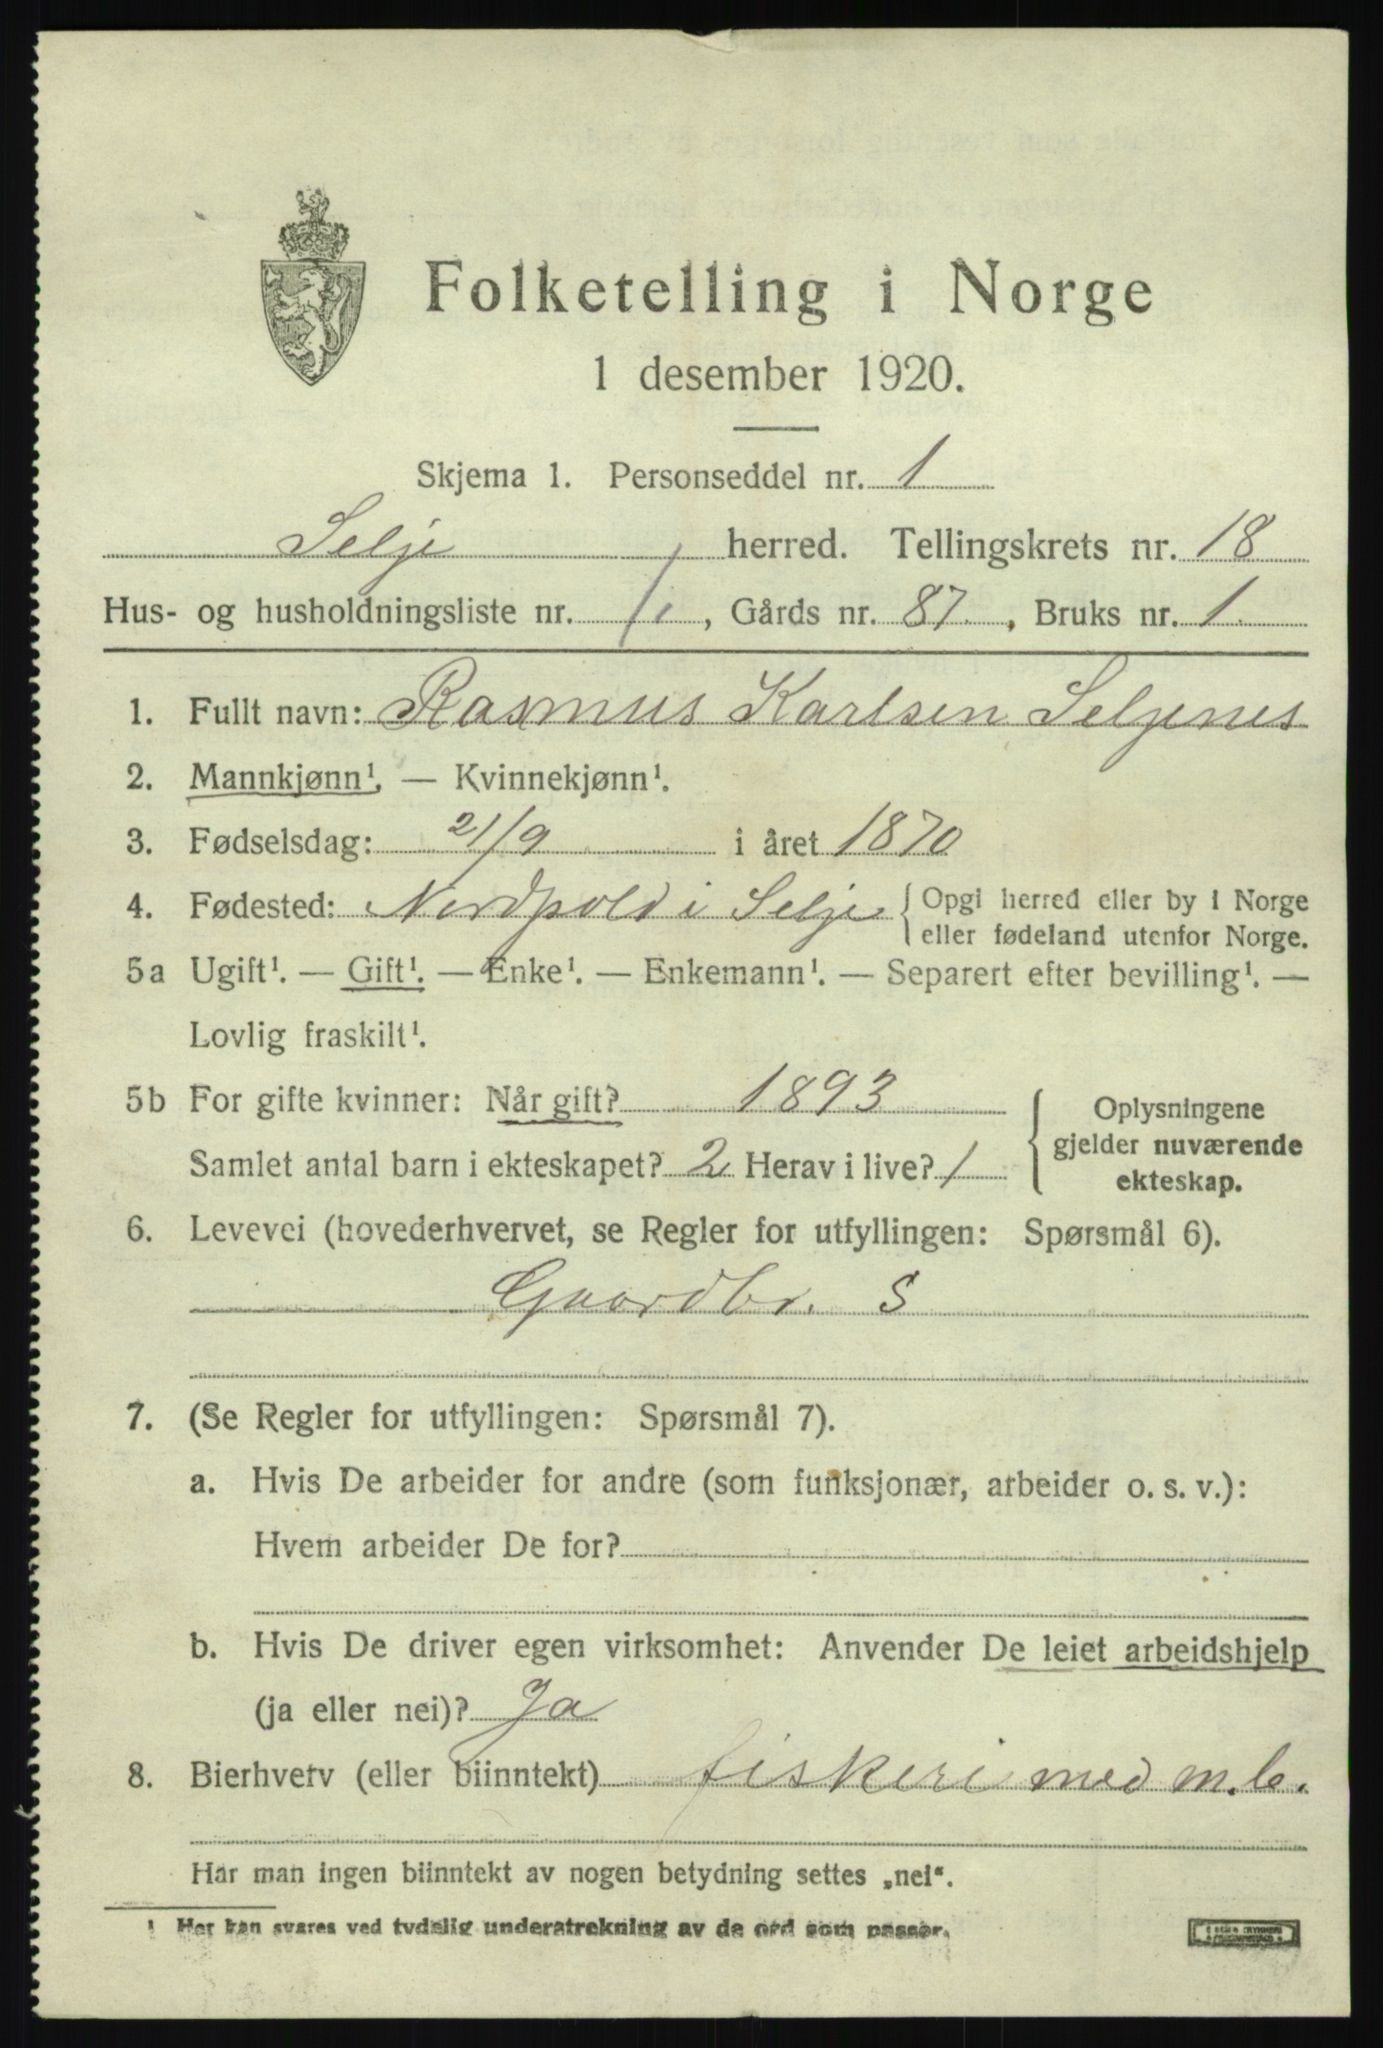 Folketelling i Norge
1 desember 1920.
Skjema 1. Personseddel nr. 1
Selje herred. Tellingskrets nr. 18
Hus- og husholdningsliste nr. 1, Gårds nr. 87, Bruks nr. 1.
1. Fullt navn: Rasmus Karlsen Seljenes
2. Mannkjønn¹. — Kvinnekjønn¹.
3. Fødselsdag: 21/9 i året 1870
4. Fødested: Nordpold i Selje { Opgi herred eller by i Norge
eller fødeland utenfor Norge.
5a Ugift¹. — Gift¹. — Enke¹. — Enkemann¹. — Separert efter bevilling¹. —
Lovlig fraskilt¹.
5b For gifte kvinner: Når gift? 1893
Samlet antal barn i ekteskapet? 2 Herav i live? 1
Oplysningene
gjelder nuværende
ekteskap.
6. Levevei (hovederhvervet, se Regler for utfyllingen: Spørsmål 6).
Gaardbr. S
7. (Se Regler for utfyllingen: Spørsmål 7).
a. Hvis De arbeider for andre (som funksjonær, arbeider o. s. v.):
Hvem arbeider De for?
b. Hvis De driver egen virksomhet: Anvender De leiet arbeidshjelp
(ja eller nei)? Ja
8. Bierhverv (eller biinntekt) fiskeri med m.b.
Har man ingen biinntekt av nogen betydning settes „nei“.
¹ Her kan svares ved tydelig understrekning av de ord som passer.